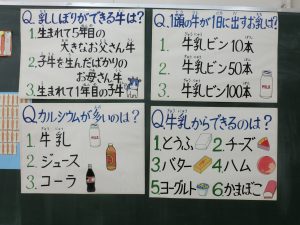 Q.乳しぼりができる牛は?
1.生まれて5年目の
大きなお父さん牛
2.子牛を生んだばかりの
お母さん牛
3.生まれて1年目の子牛
Q.1頭の牛が1日に出すお乳は?
1.牛乳ビン10本
2.牛乳ビン50本
3.牛乳ビン100本
Q.カルシウムが多いのは?
1.牛乳
2.ジュース
3.コーラ
MILK
Q.牛乳からできるのは?
1.とうふ
2.チーズ
3.バター
4.ハム
5.ヨーグルト
6.かまぼこ